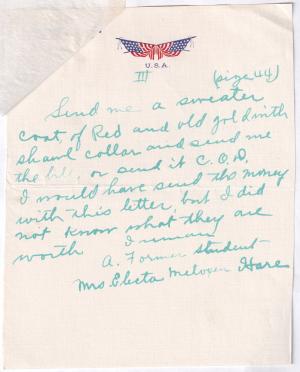 U.S.A.
III (size 44)
Send me a sweater
coat, of Red and old gold with
shawl collar and send me
the bill, or send it C.O.D.
I would have send the money
with this letter, but I did
not know what they are
worth I remain
A. Former student
Mrs Electa Hare